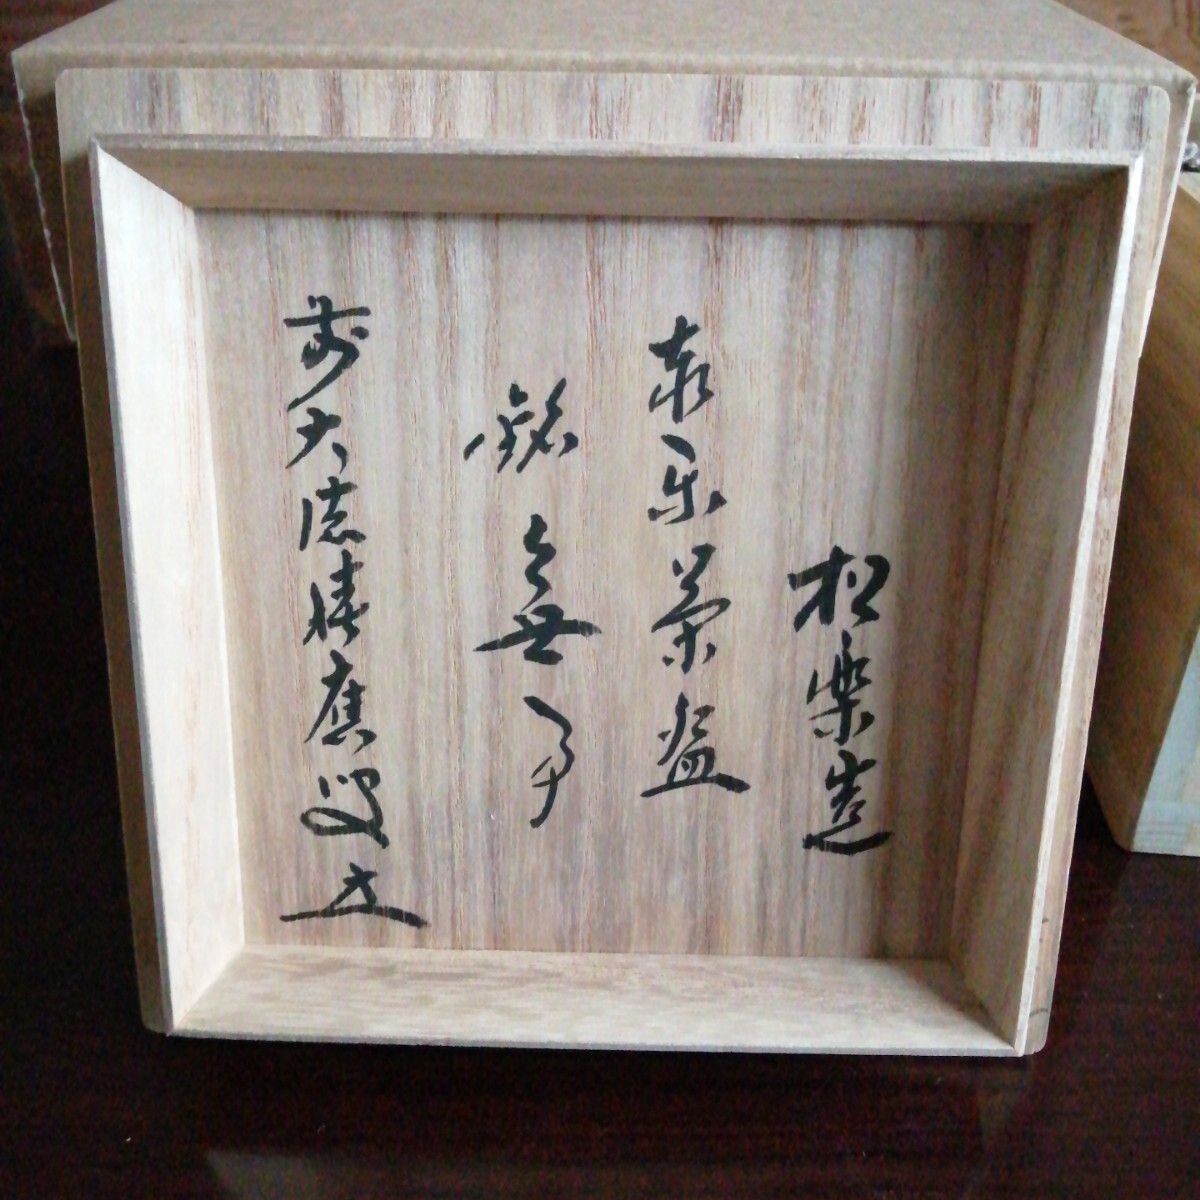 松楽造
赤楽茶盌
銘 無事
前大徳積應叟